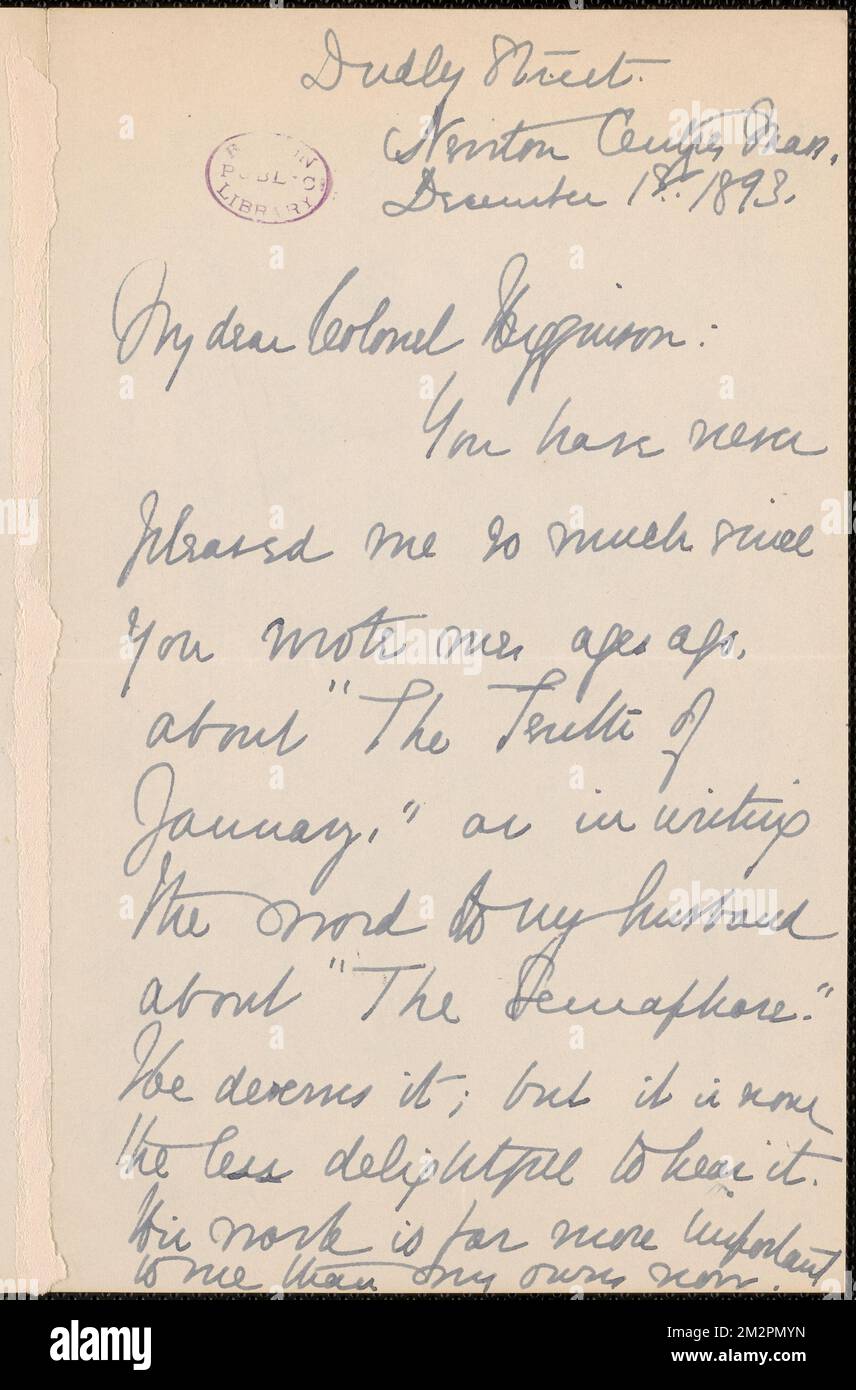 Dudly Street.
Newton Centre, Mass.
December 1st. 1893.
BOSTON
PUBLIC
LIBRARY
My dear Colonel Higginson:
You have never
pleased me so much since
you wrote me, ages ago,
about "The Tenth of
January," as in writing
the word to my husband
about "The Semaphore."
He deserves it; but it is none
the less delightful to hear it.
His work is far more important
to me than my own, now.
alamy
Image ID: 2M2PMYN
www.alamy.com